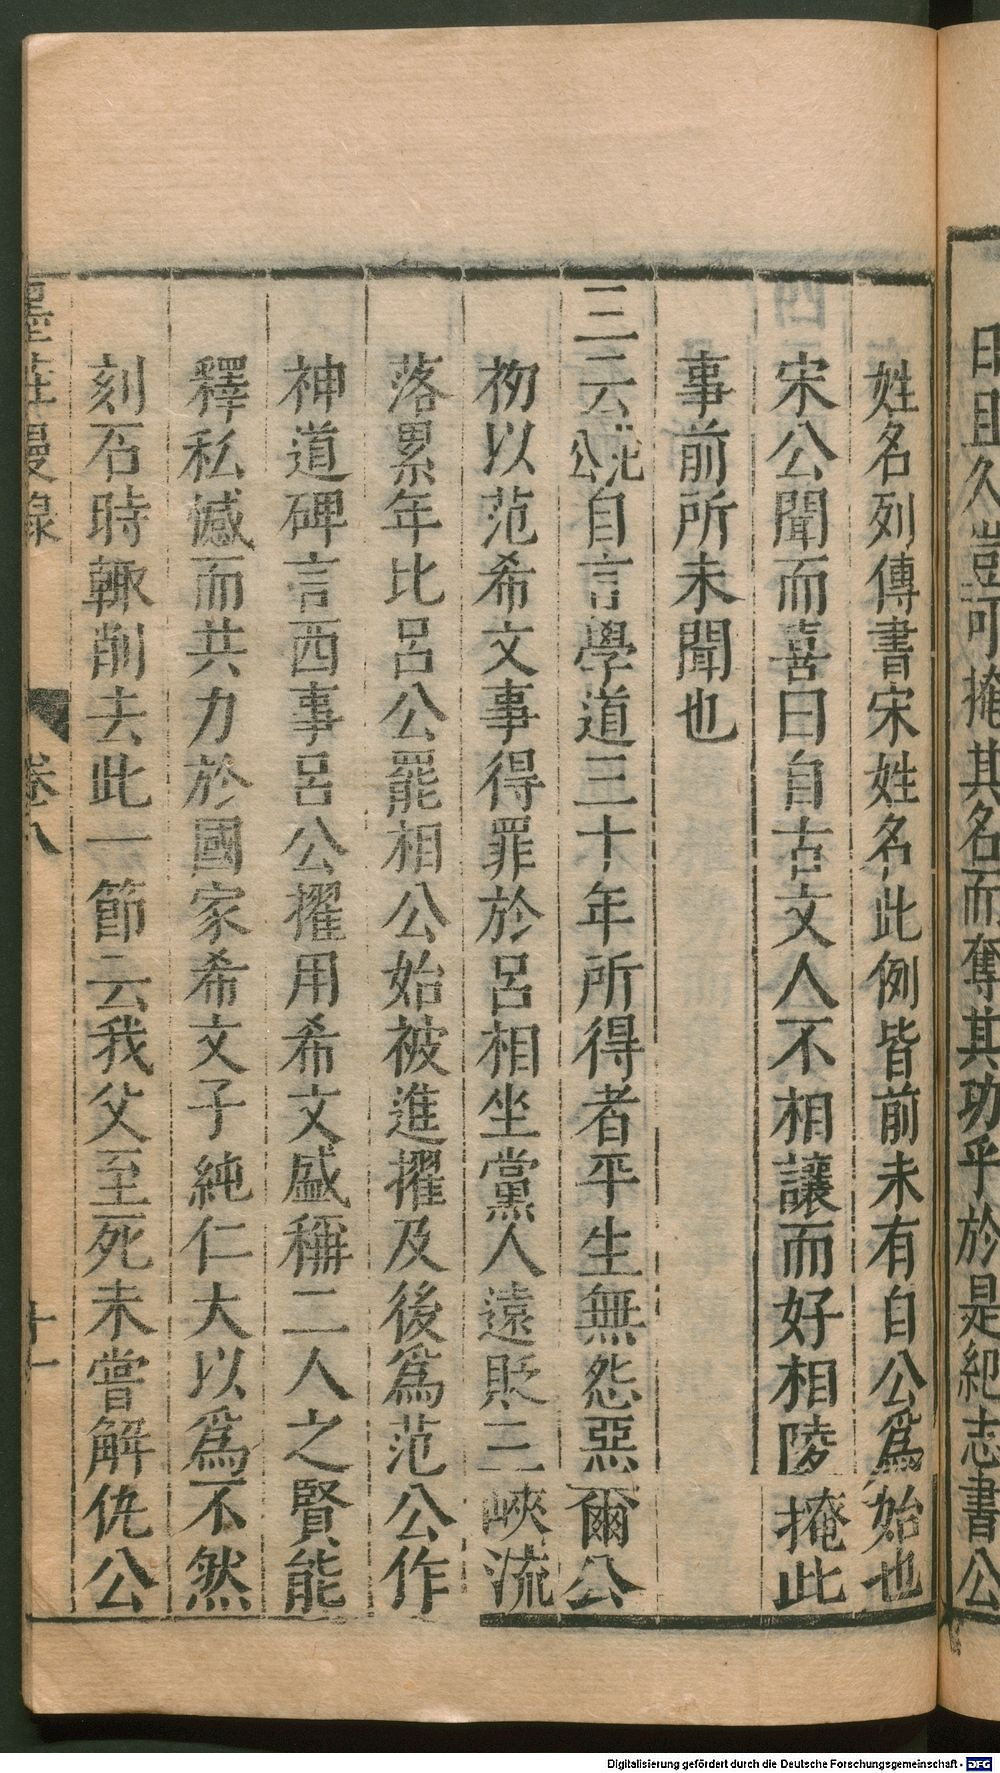 印且久豈可掩其名而奪其功乎於是紀志書公
姓名列傳書宋姓名此例皆前未有自公爲始也
宋公聞而喜曰自古文人不相讓而好相陵掩此
事前所未聞也
三云公自言學道三十年所得者平生無怨惡爾公
初以范希文事得罪於呂相坐黨人遠貶三峽流
落累年比呂公罷相公始被進擢及後爲范公作
神道碑言西事呂公擢用希文盛稱二人之賢能
釋私憾而共力於國家希文子純仁大以爲不然
刻石時輙削去此一節云我父至死未嘗解仇公
墨莊漫錄
卷八
十一
Digitalisierung gefördert durch die Deutsche Forschungsgemeinschaft - DFG